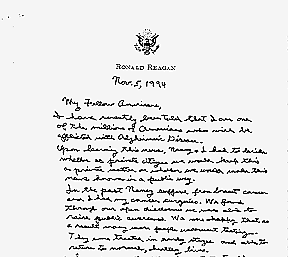 RONALD REAGAN
Nov. 5, 1994
My Fellow Americans,
I have recently been told that I am one
of the millions of Americans who will be
afflicted with Alzheimer's Disease.
Upon learning this news, Nancy & I had to decide
whether as private citizens we would keep this
a private matter or whether we would make this
news known in a public way.
In the past Nancy suffered from breast cancer
and I had my cancer surgeries. We found
through our open disclosures we were able to
raise public awareness. We were happy that as
a result many more people underwent testing.
They were treated in early stages and able to
return to normal, healthy lives.